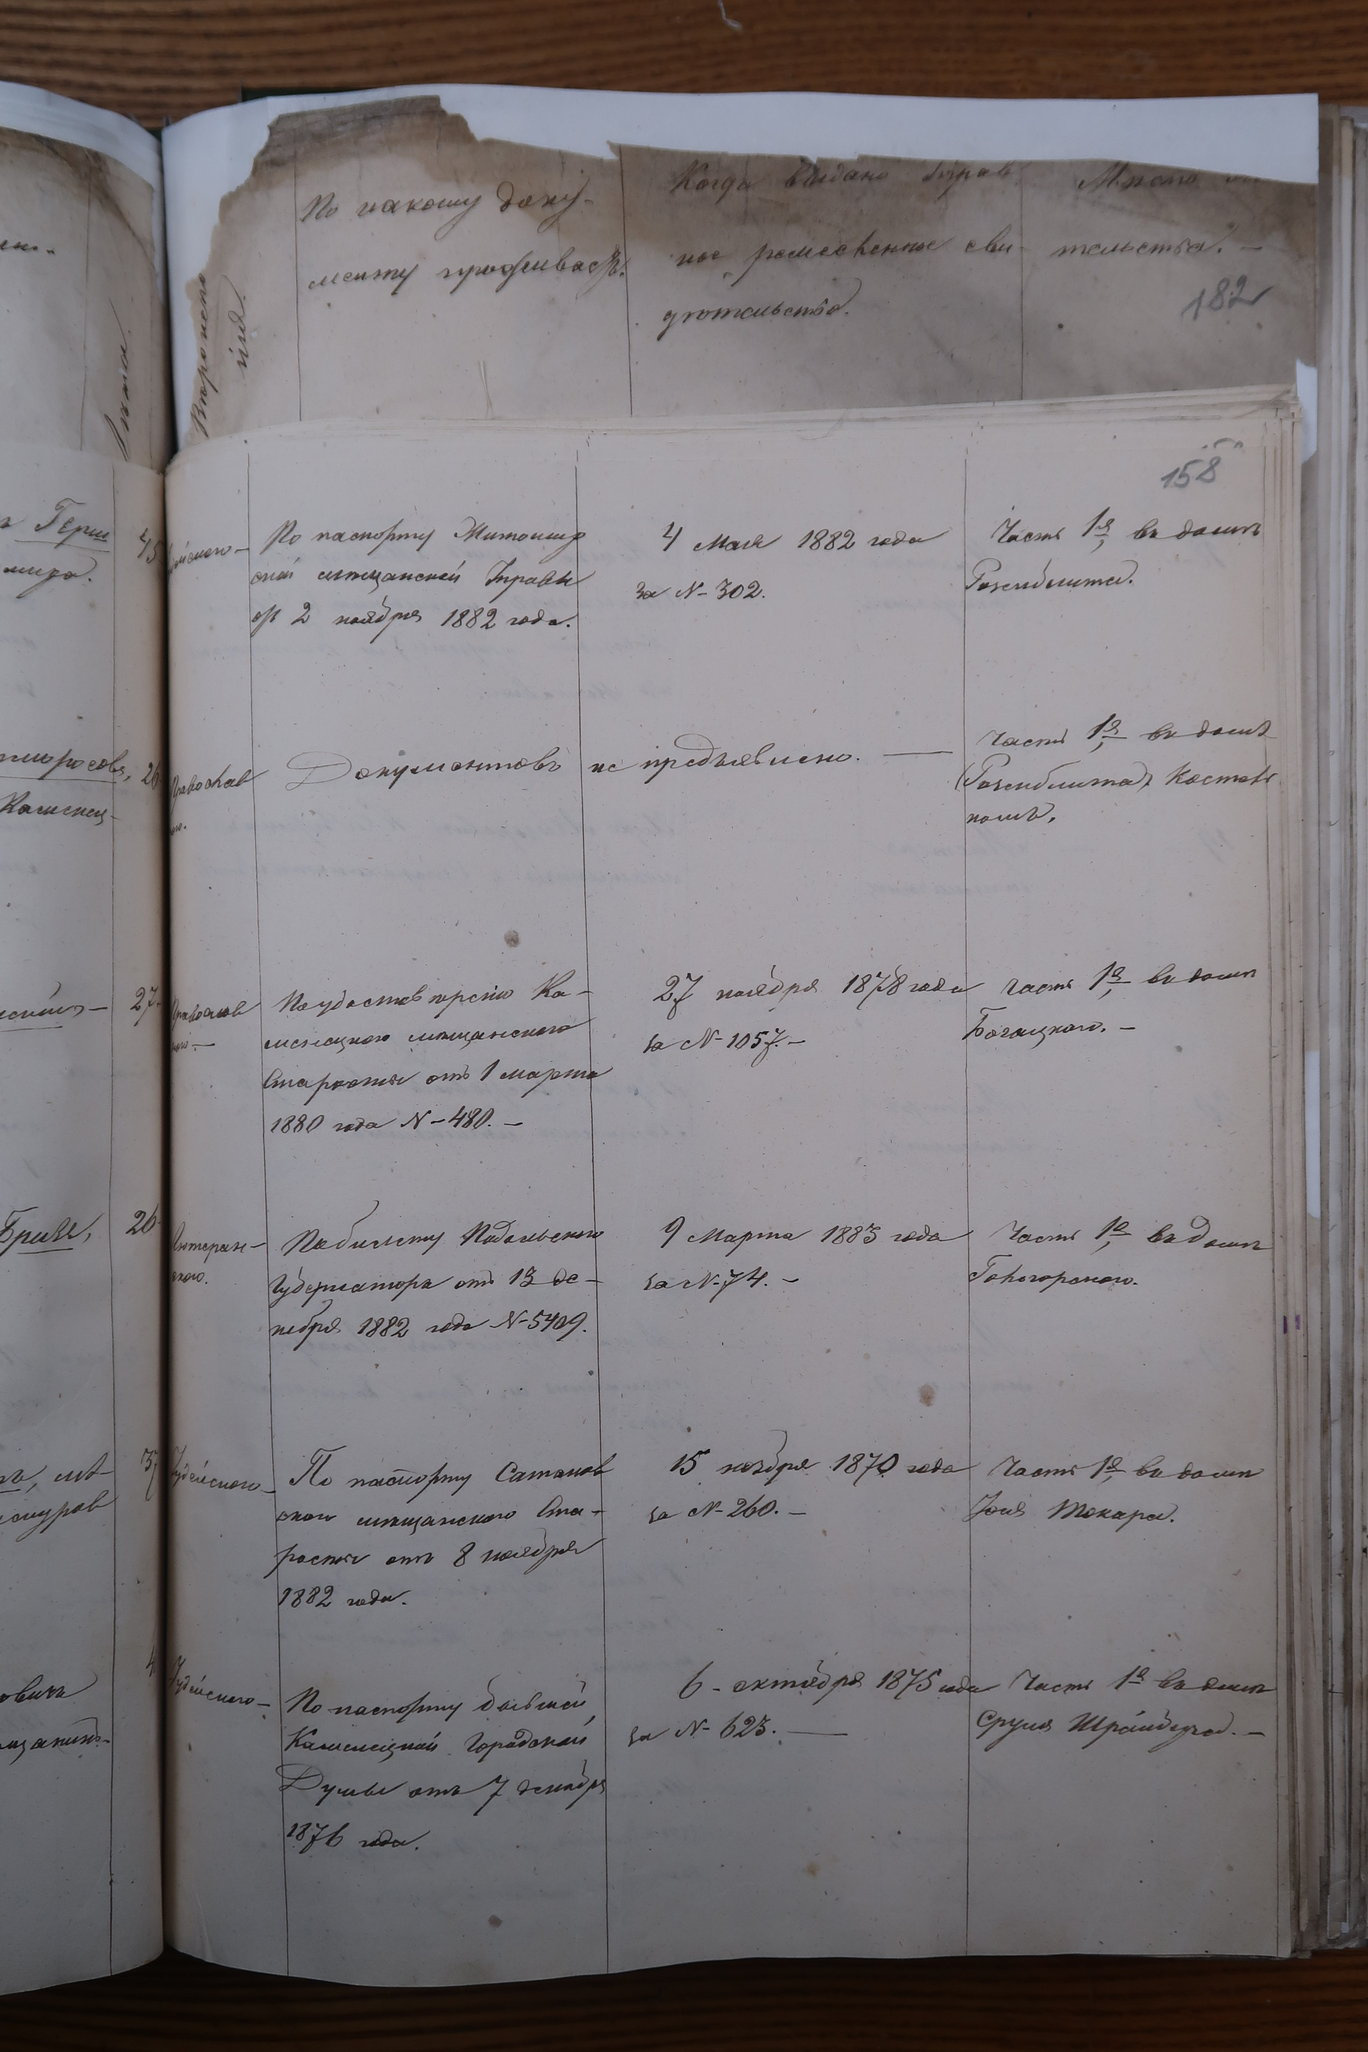 По какому доку-
менту проживаетъ.
Когда выдано Управ
ное ремесленное сви-
дѣтельство.
Мѣсто
тельства. —
182
Вѣроиспо
Лѣта
158
Герш
45
По паспорту Житомир
ской мѣщанской Управы
отъ 2 ноября 1882 года.
4 Мая 1882 года
за № 302.
Часть 1я, въ домѣ
Розенблита.
26
Православ
Каменец-
Документовъ не предъявлено. —
Часть 1я, въ домѣ
Розенблита,
27
Православ
ного. —
По удостовѣренію Ка-
менецкого мѣщанского
Старосты отъ 1 марта
1880 года № 480. —
27 ноября 1878 года
за № 1057. —
Часть 1я, въ домѣ
Богацкого. —
26
Лютеран-
ского.
По билету Подольского
Губернатора отъ 13 де-
кабря 1882 года № 5409.
9 Марта 1883 года
за № 74. —
Часть 1я, въ домѣ
37
Іудейского —
По паспорту Сатанов
ского мѣщанского Ста-
росты отъ 8 ноября
1882 года.
15 ноября 1870 года
за № 260. —
Часть 1я въ домѣ
Токаря.
овичъ
Іудейского —
По паспорту бывшей
Каменецкой Городской
Думы отъ 7 декабря
1876 года.
6 октября 1875 года
за № 623. —
Часть 1я въ домѣ
Сруля